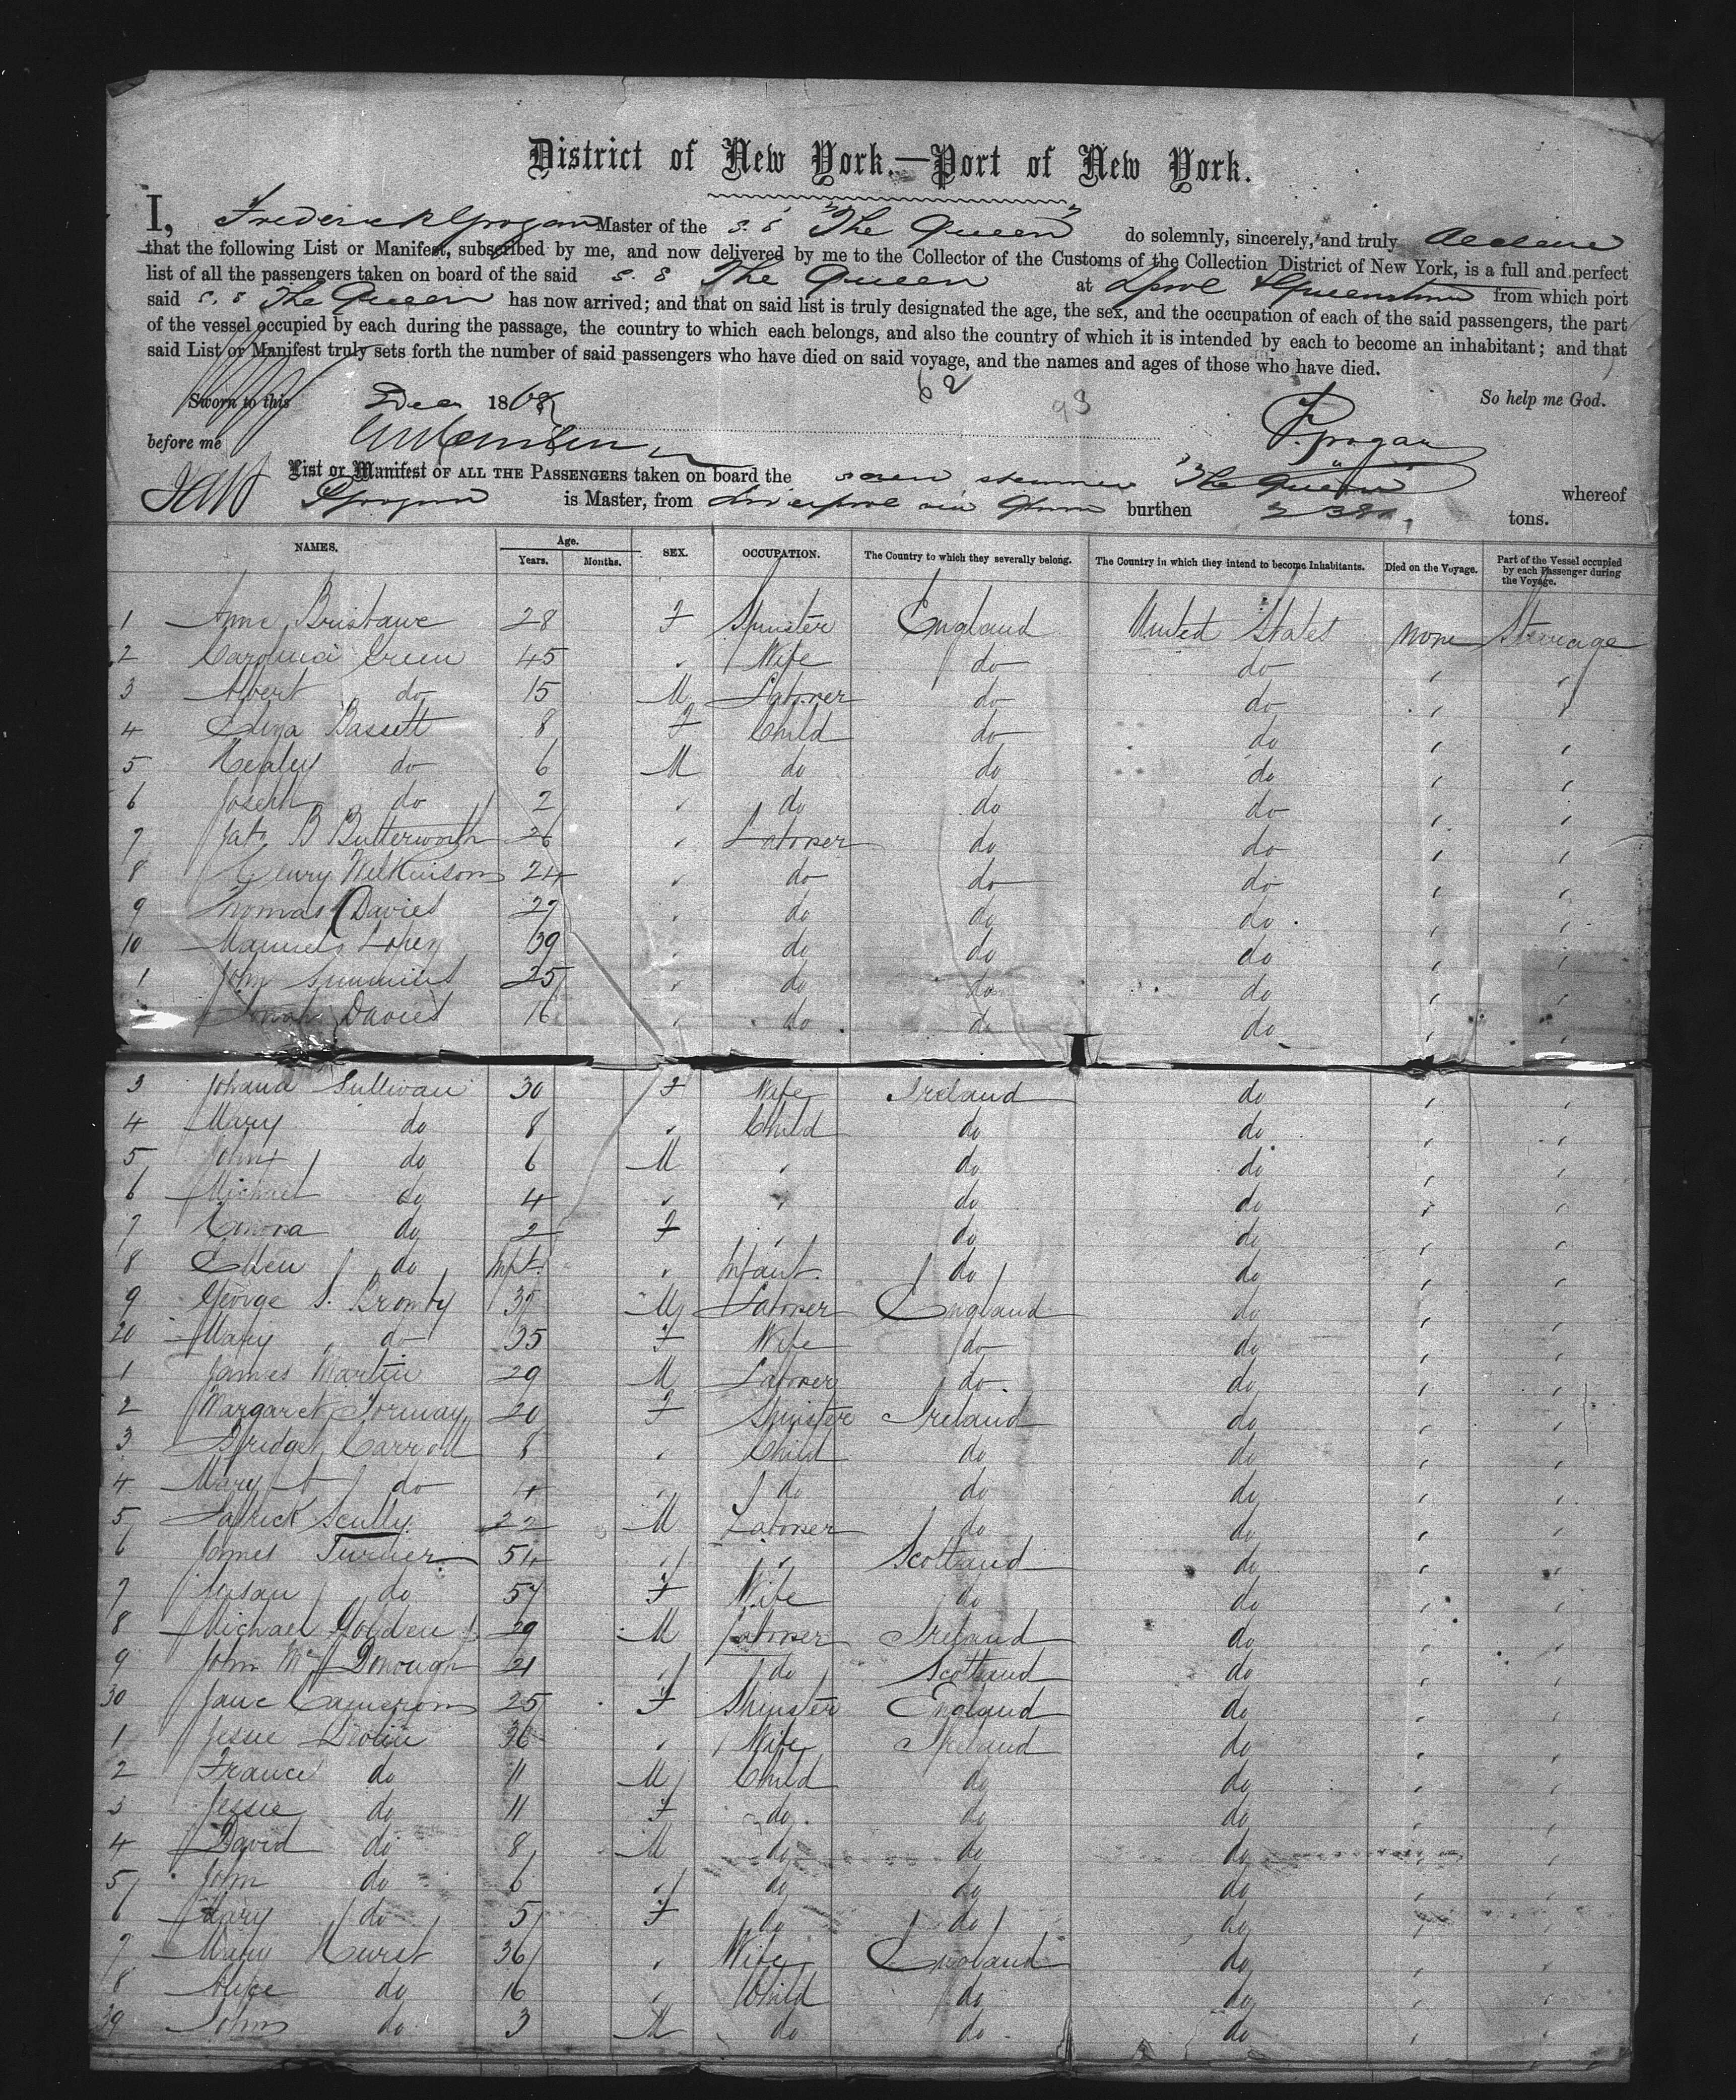 District of New York.—Port of New York.
I, Frederick Grogan Master of the S.S "The Queen" do solemnly, sincerely, and truly declare
that the following List or Manifest, subscribed by me, and now delivered by me to the Collector of the Customs of the Collection District of New York, is a full and perfect
list of all the passengers taken on board of the said S.S The Queen at Lpool & Queenstown from which port
said S.S The Queen has now arrived; and that on said list is truly designated the age, the sex, and the occupation of each of the said passengers, the part
of the vessel occupied by each during the passage, the country to which each belongs, and also the country of which it is intended by each to become an inhabitant; and that
said List or Manifest truly sets forth the number of said passengers who have died on said voyage, and the names and ages of those who have died.
62 93
Sworn to this Dec 1868 So help me God.
before me F. Grogan
List or Manifest OF ALL THE PASSENGERS taken on board the screw steamer "The Queen" whereof
F Grogan is Master, from Liverpool via burthen tons.
NAMES. Age. Years. Months. SEX. OCCUPATION. The Country to which they severally belong. The Country in which they intend to become Inhabitants. Died on the Voyage. Part of the Vessel occupied by each Passenger during the Voyage.
1 Anne Bristawe 28 F Spinster England United States none Steerage
2 Carolina Green 45 " Wife do do " "
3 Albert do 15 M Laborer do do " "
4 Eliza Bassett 8 F Child do do " "
5 Healey do 6 M do do do " "
6 Joseph do 2 " do do do " "
7 Jas B Butterworth 26 " Laborer do do " "
8 Henry Wilkinson 24 " do do do " "
9 Thomas Davies 27 " do do do " "
10 Manuel Lopez 39 " do do do " "
1 John 25 " do do do " "
Davies 16 " do do do " "
3 Johana Sullivan 30 F Wife Ireland do " "
4 Mary do 8 " Child do do " "
5 John do 6 M " do do " "
6 Michael do 4 " " do do " "
7 Honora do 2 F " do do " "
8 Ellen do Inft. " Infant. do do " "
9 George S. Bromby 35 M Laborer England do " "
20 Mary do 35 F Wife do do " "
1 James Martin 29 M Laborer do do " "
2 Margaret Tormay 20 F Spinster Ireland do " "
3 Bridget Carroll 8 " Child do do " "
4 Mary A do 4 " do do do " "
5 Patrick Scully 22 M Laborer do do " "
6 James Turner 54 " " Scotland do " "
7 Susan do 57 F Wife do do " "
8 Michael Golden 29 M Laborer Ireland do " "
9 John McDonough 21 " do Scotland do " "
30 Jane Cameron 25 F Spinster England do " "
1 Jessie 36 " Wife Ireland do " "
2 Francis do 11 M Child do do " "
3 Jessie do 11 F do do do " "
4 David do 8 M do do do " "
5 John do 6 " do do do " "
6 Mary do 5 F do do do " "
7 Mary Hurst 36 " Wife England do " "
8 Alice do 16 " Child do do " "
39 John do 3 M do do do " "